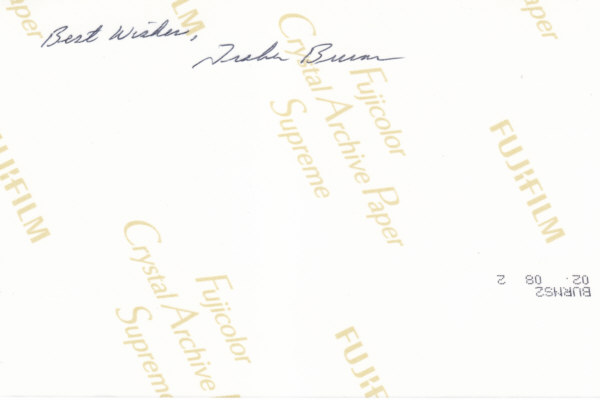 Best Wishes,
Paper
LM
Paper
Fujicolor
Crystal Archive Paper
Supreme
FUJIFILM
FUJIFILM
Fujicolor
Crystal Archive
Supreme
FUJIF
02. 08 2
BURNS2